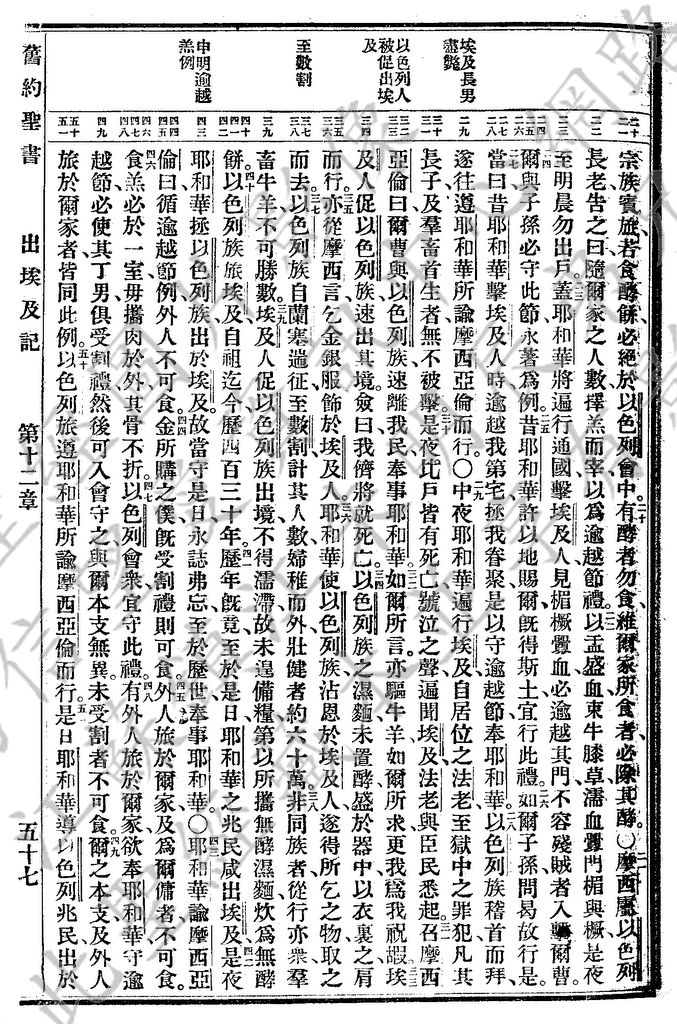 埃及長男
盡斃
以色列人
被促出埃
及
至數割
申明逾越
羔例
二十
二一
二二
二三
二四
二五
二六
二七
二八
二九
三十
三一
三二
三三
三四
三五
三六
三七
三八
三九
四十
四一
四二
四三
四四
四五
四六
四七
四八
四九
五十
五一
宗族賓旅若食酵餘必絕於以色列會中有酵者勿食維爾家所食者必除其酵〇摩西召以色列
長老告之曰隨爾家之人數擇羔而宰以爲逾越節禮以盂盛血束牛膝草濡血釁門楣與橛是夜
至明晨勿出戶蓋耶和華將遍行通國擊埃及人見楣橛釁血必逾越其門不容殘賊者入擊爾曹
爾與子孫必守此節永著爲例昔耶和華許以地賜爾旣得斯土宜行此禮如爾子孫問曷故行是
當曰昔耶和華擊埃及人時逾越我第宅拯我眷聚是以守逾越節奉耶和華以色列族稽首而拜
遂往遵耶和華所諭摩西亞倫而行〇中夜耶和華遍行埃及自居位之法老至獄中之罪犯凡其
長子及羣畜首生者無不被擊是夜比戶皆有死亡號泣之聲遍聞埃及法老與臣民悉起召摩西
亞倫曰爾曹與以色列族速離我民奉事耶和華如爾所言亦驅牛羊如爾所求更我爲我祝嘏埃
及人促以色列族速出其境僉曰我儕將就死亡以色列族之濕麵未置酵盛於器中以衣裹之肩
而行亦從摩西言乞金銀服飾於埃及人耶和華使以色列族沾恩於埃及人遂得所乞之物取之
而去以色列族自蘭塞遄征至數割計其人數婦稚而外壯健者約六十萬非同族者從行亦衆羣
畜牛羊不可勝數埃及人促以色列族出境不得濡滯故未遑備糧第以所攜無酵濕麵炊爲無酵
餅以色列族旅埃及自祖迄今歷四百三十年歷年旣竟至於是日耶和華之兆民咸出埃及是夜
耶和華拯以色列族出於埃及故當守是日永誌弗忘至於歷世奉事耶和華〇耶和華諭摩西亞
倫曰循逾越節例外人不可食金所購之僕旣受割禮則可食外人旅於爾家及爲爾傭者不可食
食羔必於一室毋攜肉於外其骨不折以色列會衆宜守此禮有外人旅於爾家欲奉耶和華守逾
越節必使其丁男俱受割禮然後可入會守之與爾本支無異未受割者不可食爾之本支及外人
旅於爾家者皆同此例以色列族遵耶和華所諭摩西亞倫而行是日耶和華導以色列兆民出於
舊約聖書 出埃及記 第十二章 五十七